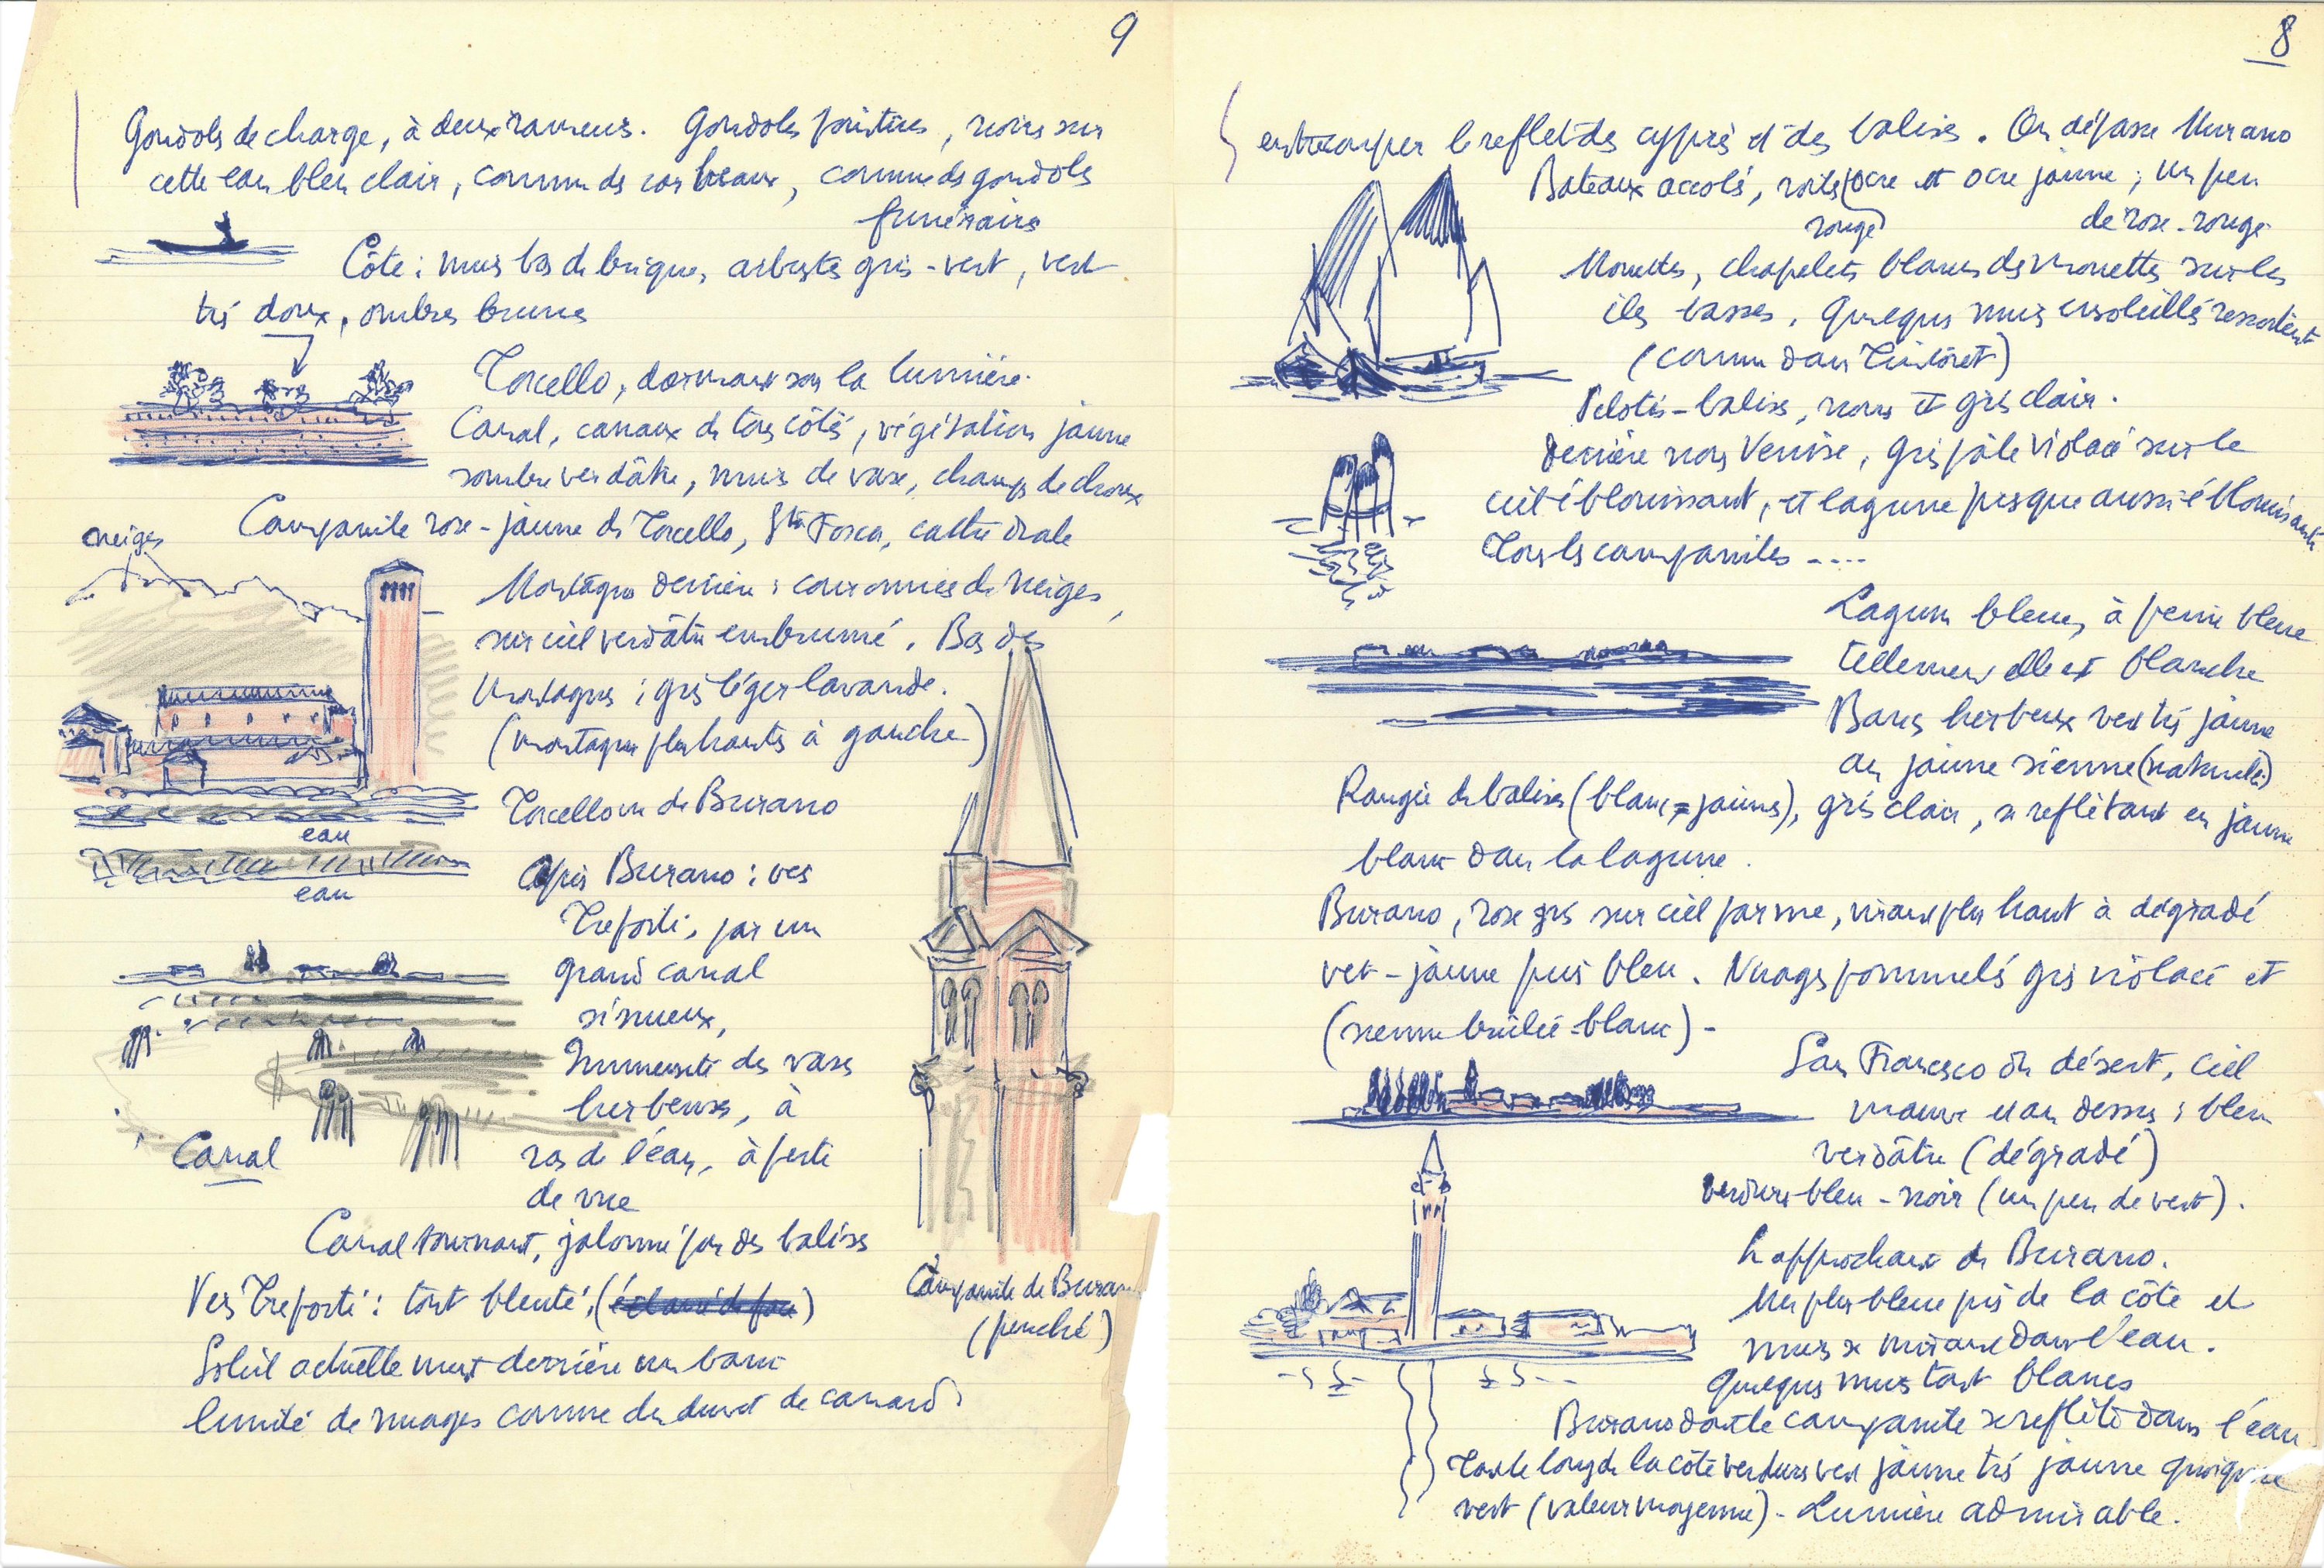 9
Gondoles de charge, à deux rameurs. Gondoles pointues, noires sur
cette eau bleu clair, comme des corbeaux, comme des gondoles
funéraires
Côte : murs bas de briques, arbustes gris-vert, vert
très doux, ombres brunes
Torcello, dormant sous la lumière.
Canal, canaux de tous côtés, végétation jaune
sombre verdâtre, murs de vase, champs de choux
Campanile rose-jaune de Torcello, Sta Fosca, cathédrale
neiges
Montagnes derrière : couronnées de neiges,
sur ciel verdâtre embrumé. Bas des
Montagnes : gris léger lavande.
(montagnes plus hautes à gauche)
Torcello vu de Burano
eau
eau
Après Burano : vers
Treporti, par un
grand canal
sinueux,
Immensité des vases
herbeuses, à
ras de l'eau, à perte
de vue
Canal
Canal tournant, jalonné par des balises
Vers Treporti : tout bleuté, (
)
Soleil actuellement derrière un banc
limité de nuages comme du duvet de canard.
Campanile de Burano
(penché)
8
entrecouper le reflet des cyprès et des balises. On dépasse Murano
Bateaux accolés, voiles (ocre et ocre jaune ; un peu
rouge)
de rose-rouge
Mouettes, chapelets blancs de mouettes sur les
îles basses. Quelques murs ensoleillés ressortent
(comme dans Tintoret)
Pelotes-balises, noires et gris clair.
Derrière nous Venise, gris pâle violacé sur le
ciel éblouissant, et lagune presque aussi éblouissante
Tous les campaniles ....
Lagune bleue, à peine bleue
tellement elle est blanche
Bancs herbeux vert très jaune
ou jaune sienne (naturelle)
Rangée de balises (blanc = jaunes), gris clair, se reflétant en jaune
blanc dans la lagune.
Burano, rose gris sur ciel parme, virant plus haut à dégradé
vert-jaune puis bleu. Nuages pommelés gris violacé et
(sienne brûlée-blanc) -
San Francesco du désert, ciel
mauve et au dessus : bleu
verdâtre (dégradé)
verdures bleu-noir (un peu de vert).
En approchant de Burano.
Mer plus bleue près de la côte et
murs se mirant dans l'eau.
Quelques murs tout blancs
Burano dont le campanile se reflète dans l'eau
Tout le long de la côte verdures vert jaune très jaune quoique
vert (valeur moyenne) - Lumière admirable.